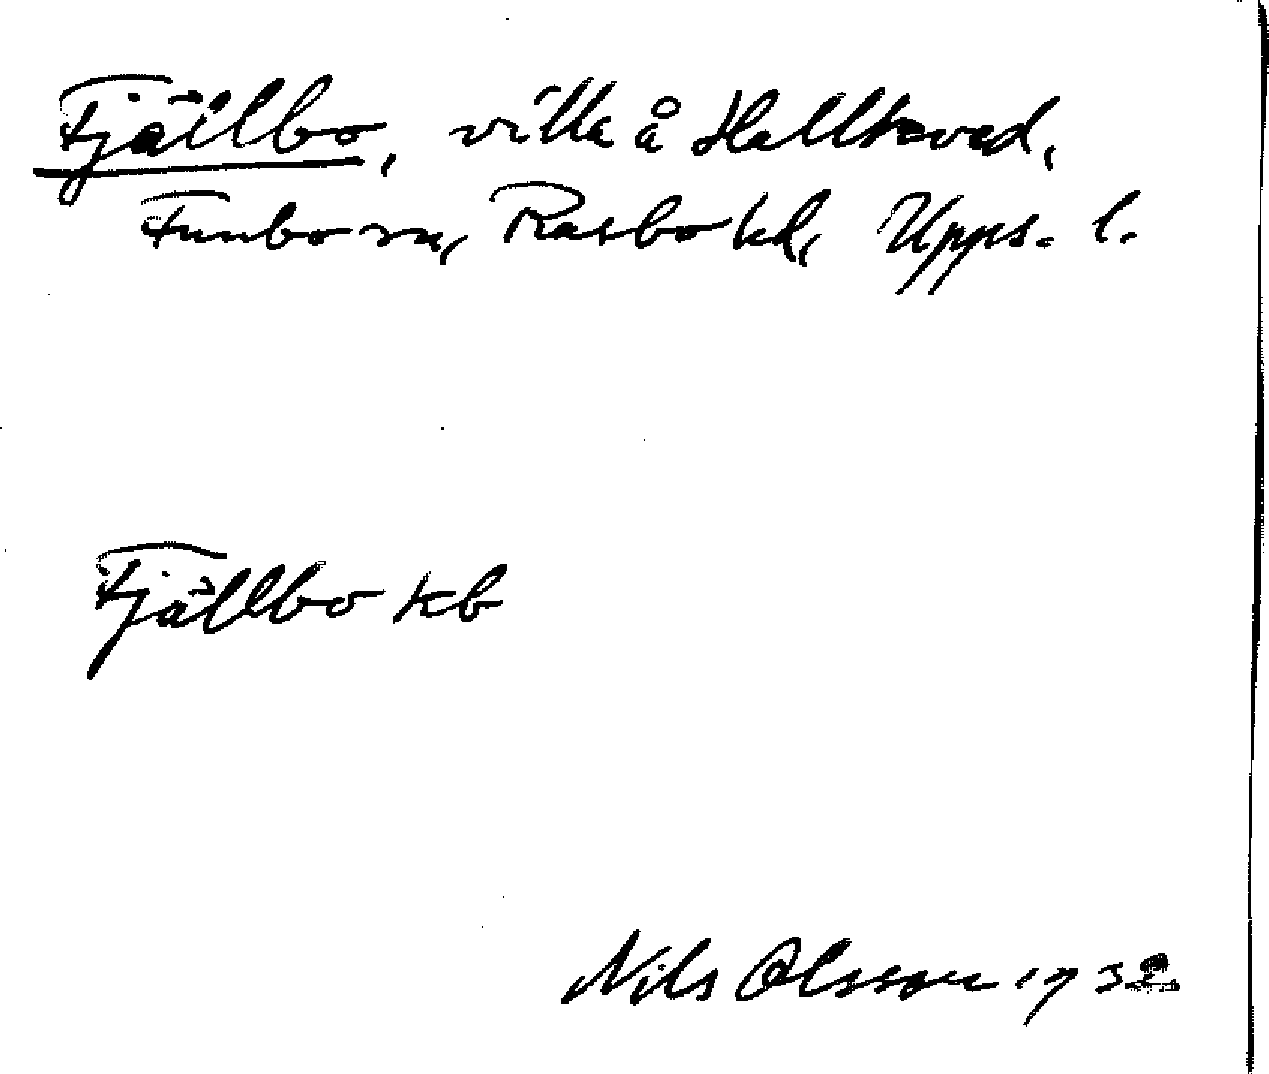 Fjällbo, villa å Hallkved,
Funbo sn, Rasbo hd, Upps. l.
Fjällbo kb
Nils Olsson 1932